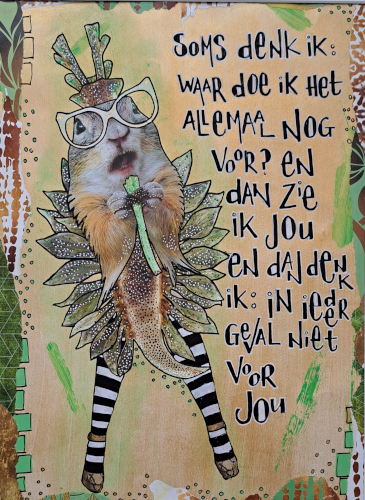 Soms denk ik:
waar doe ik het
allemaal nog
voor? en
dan zie
ik jou
en dan denk
ik: in ieder
geval niet
voor
jou